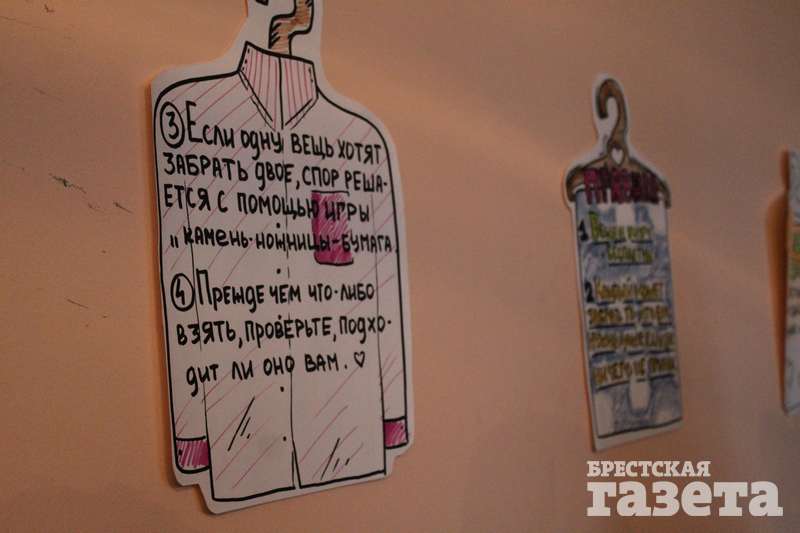 ③ Если одну вещь хотят
забрать двое, спор реша-
ется с помощью игры
„камень-ножницы-бумага.
④ Прежде чем что-либо
взять, проверьте, подхо-
дит ли оно вам. ♡
Правила
1 Вещи
2 Каждый может
забрать
ничего не
БРЕСТСКАЯ
газета